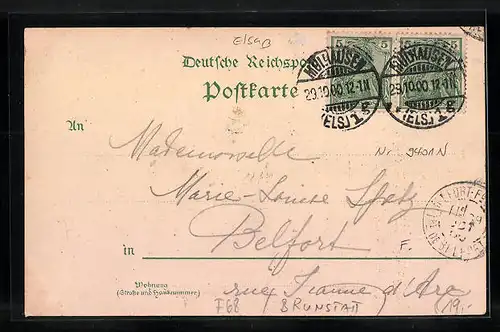 Elsaß
5 5 5 5
MÜLHAUSEN
29.10.00.12-1N
(ELS) 1 g
MÜLHAUSEN
29.10.00.12-1N
(ELS) 1 g
Deutsche Reichspost
Postkarte
An
Nr 9401 N
Mademoiselle
Marie-Louise Spetz
in Belfort
F.
Wohnung
(Straße und Hausnummer)
rue Jeanne d'Arc
F68 BRUNSTATT
(19,-